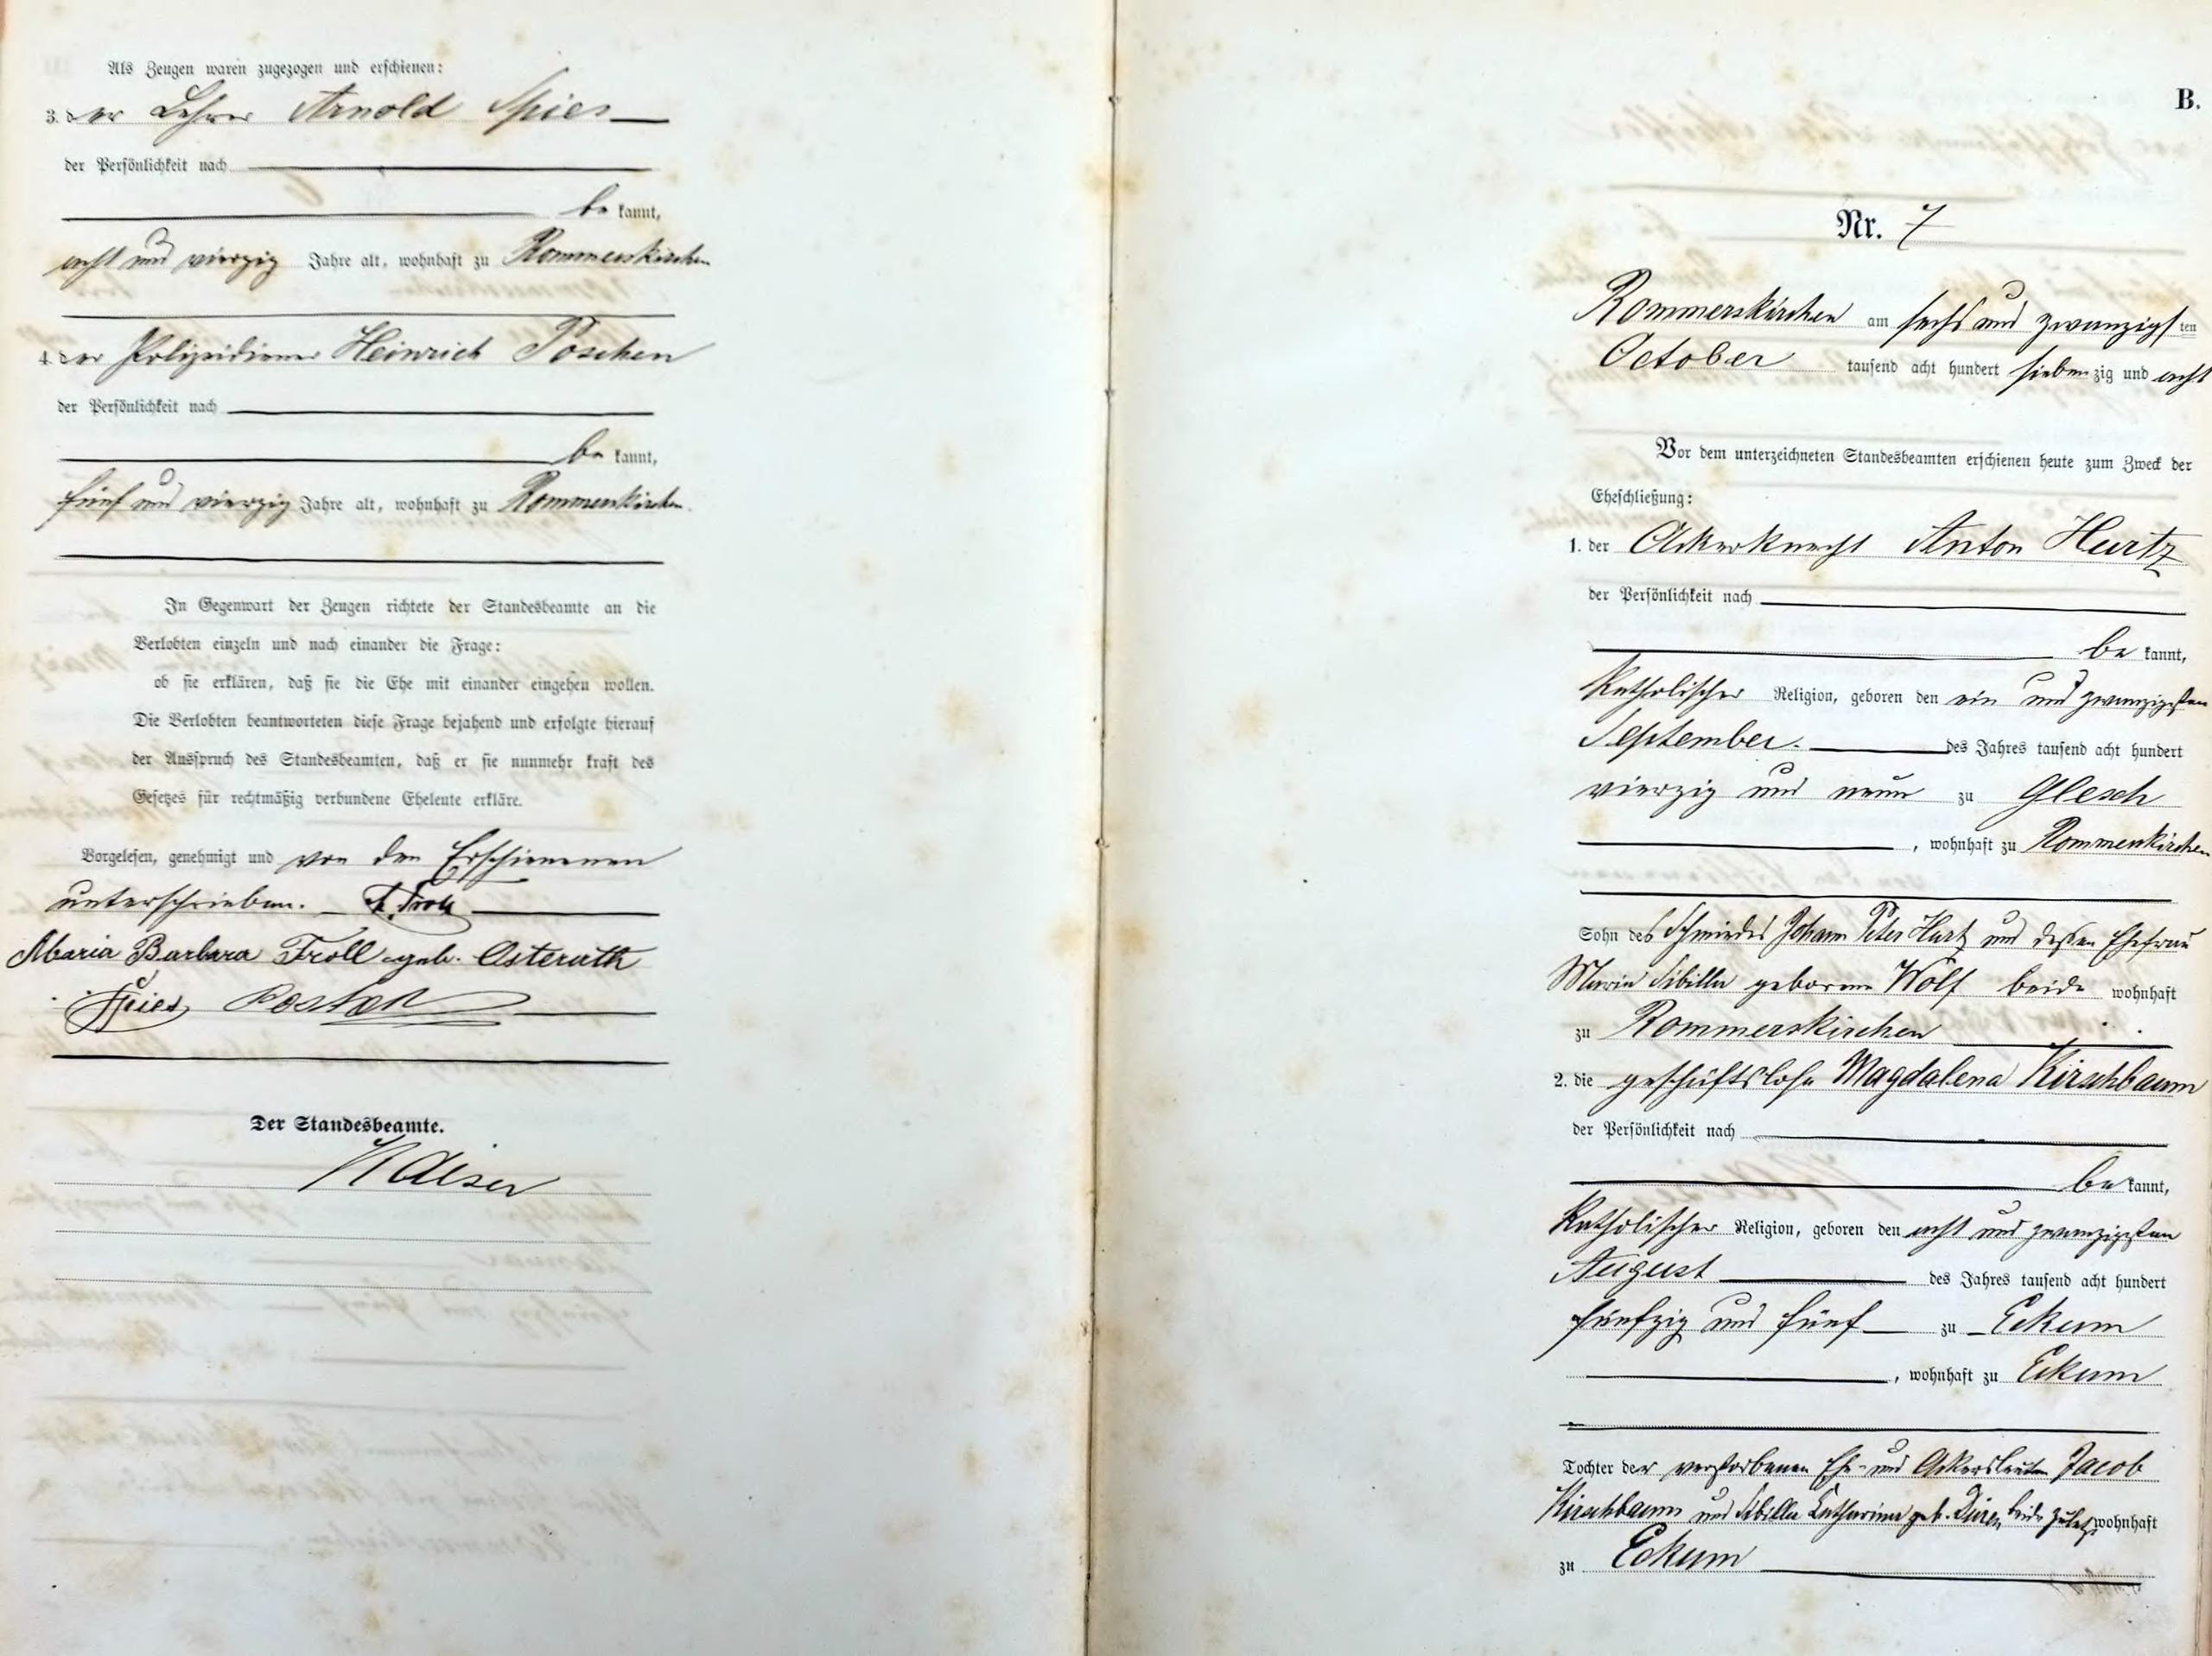 Als Zeugen waren zugezogen und erschienen:
3. der Lehrer Arnold Spies
der Persönlichkeit nach
be kannt,
acht und vierzig Jahre alt, wohnhaft zu Rommerskirchen
4. der Polizeidiener Heinrich Poschen
der Persönlichkeit nach
be kannt,
fünf und vierzig Jahre alt, wohnhaft zu Rommerskirchen.
In Gegenwart der Zeugen richtete der Standesbeamte an die
Verlobten einzeln und nach einander die Frage:
ob sie erklären, daß sie die Ehe mit einander eingehen wollen.
Die Verlobten beantworteten diese Frage bejahend und erfolgte hierauf
der Ausspruch des Standesbeamten, daß er sie nunmehr kraft des
Gesetzes für rechtmäßig verbundene Eheleute erkläre.
Vorgelesen, genehmigt und von den Erschienenen
unterschrieben. Troll
Maria Barbara Troll geb. Osterath
Spies
Der Standesbeamte.
Kaiser
B.
Nr. 7
Rommerskirchen am sechs und zwanzigsten
October tausend acht hundert siebenzig und acht
Vor dem unterzeichneten Standesbeamten erschienen heute zum Zweck der
Eheschließung:
1. der Ackerknecht Anton Hurtz
der Persönlichkeit nach
be kannt,
katholischer Religion, geboren den ein und zwanzigsten
September. des Jahres tausend acht hundert
vierzig und neun zu Glesch
, wohnhaft zu Rommerskirchen
Sohn des Schmiedes Johann Peter Hurtz und dessen Ehefrau
Maria Sibilla geborene Wolf beide wohnhaft
zu Rommerskirchen
2. die geschäftslose Magdalena Kirschbaum
der Persönlichkeit nach
be kannt,
katholischer Religion, geboren den acht und zwanzigsten
August des Jahres tausend acht hundert
fünfzig und fünf zu Eckum
, wohnhaft zu Eckum
Tochter der verstorbenen Ehe- und Ackersleuten Jacob
Kirschbaum und Sibilla Catharina geb. beide zuletzt wohnhaft
zu Eckum